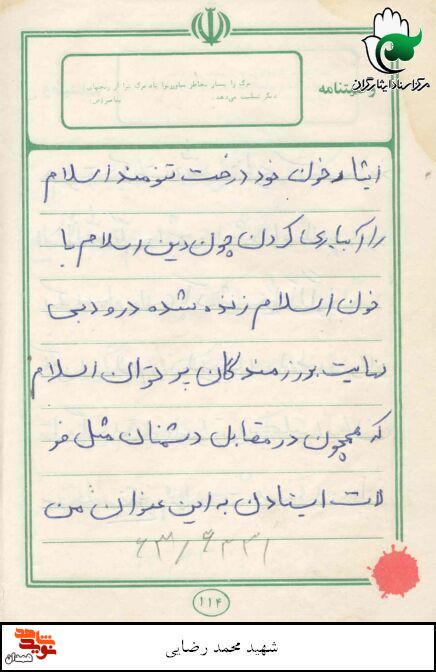 مرکز اسناد ایثارگران
وصیتنامه
مرگ را بسیار بخاطر بیاورید یاد مرگ شما را از رنجهای
دیگر تسلیت می‌دهد.
ایثار خون خود درخت تنومند اسلام
را آبیاری کردن چون دین اسلام با
خون اسلام زنده شده درود بی
نهایت بر رزمندگان پر توان اسلام
که همچون در مقابل دشمنان مثل فو
لات ایستادن به این عنوان من
۱۱۴
شهید محمد رضایی
نوید شاهد
همدان